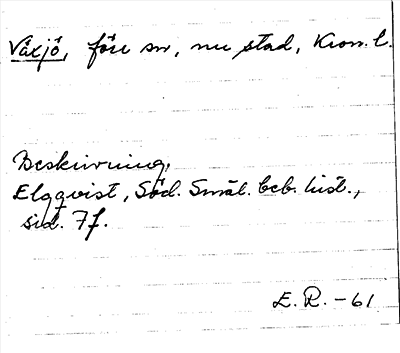 Växjö, förr sn, nu stad, Kron. l.
Beskrivning,
Elgqvist, Söd. Smål. beb. hist.,
sid. 7f.
E. R. -61